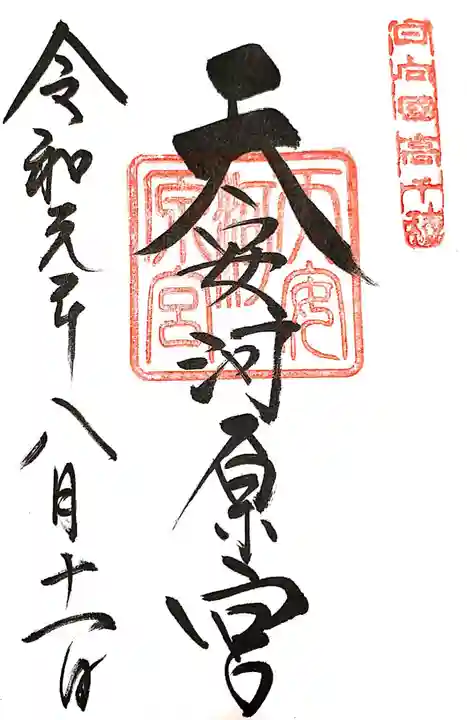 日向國高千穂
天安河原宮
天安河原宮
令和元年八月十一日